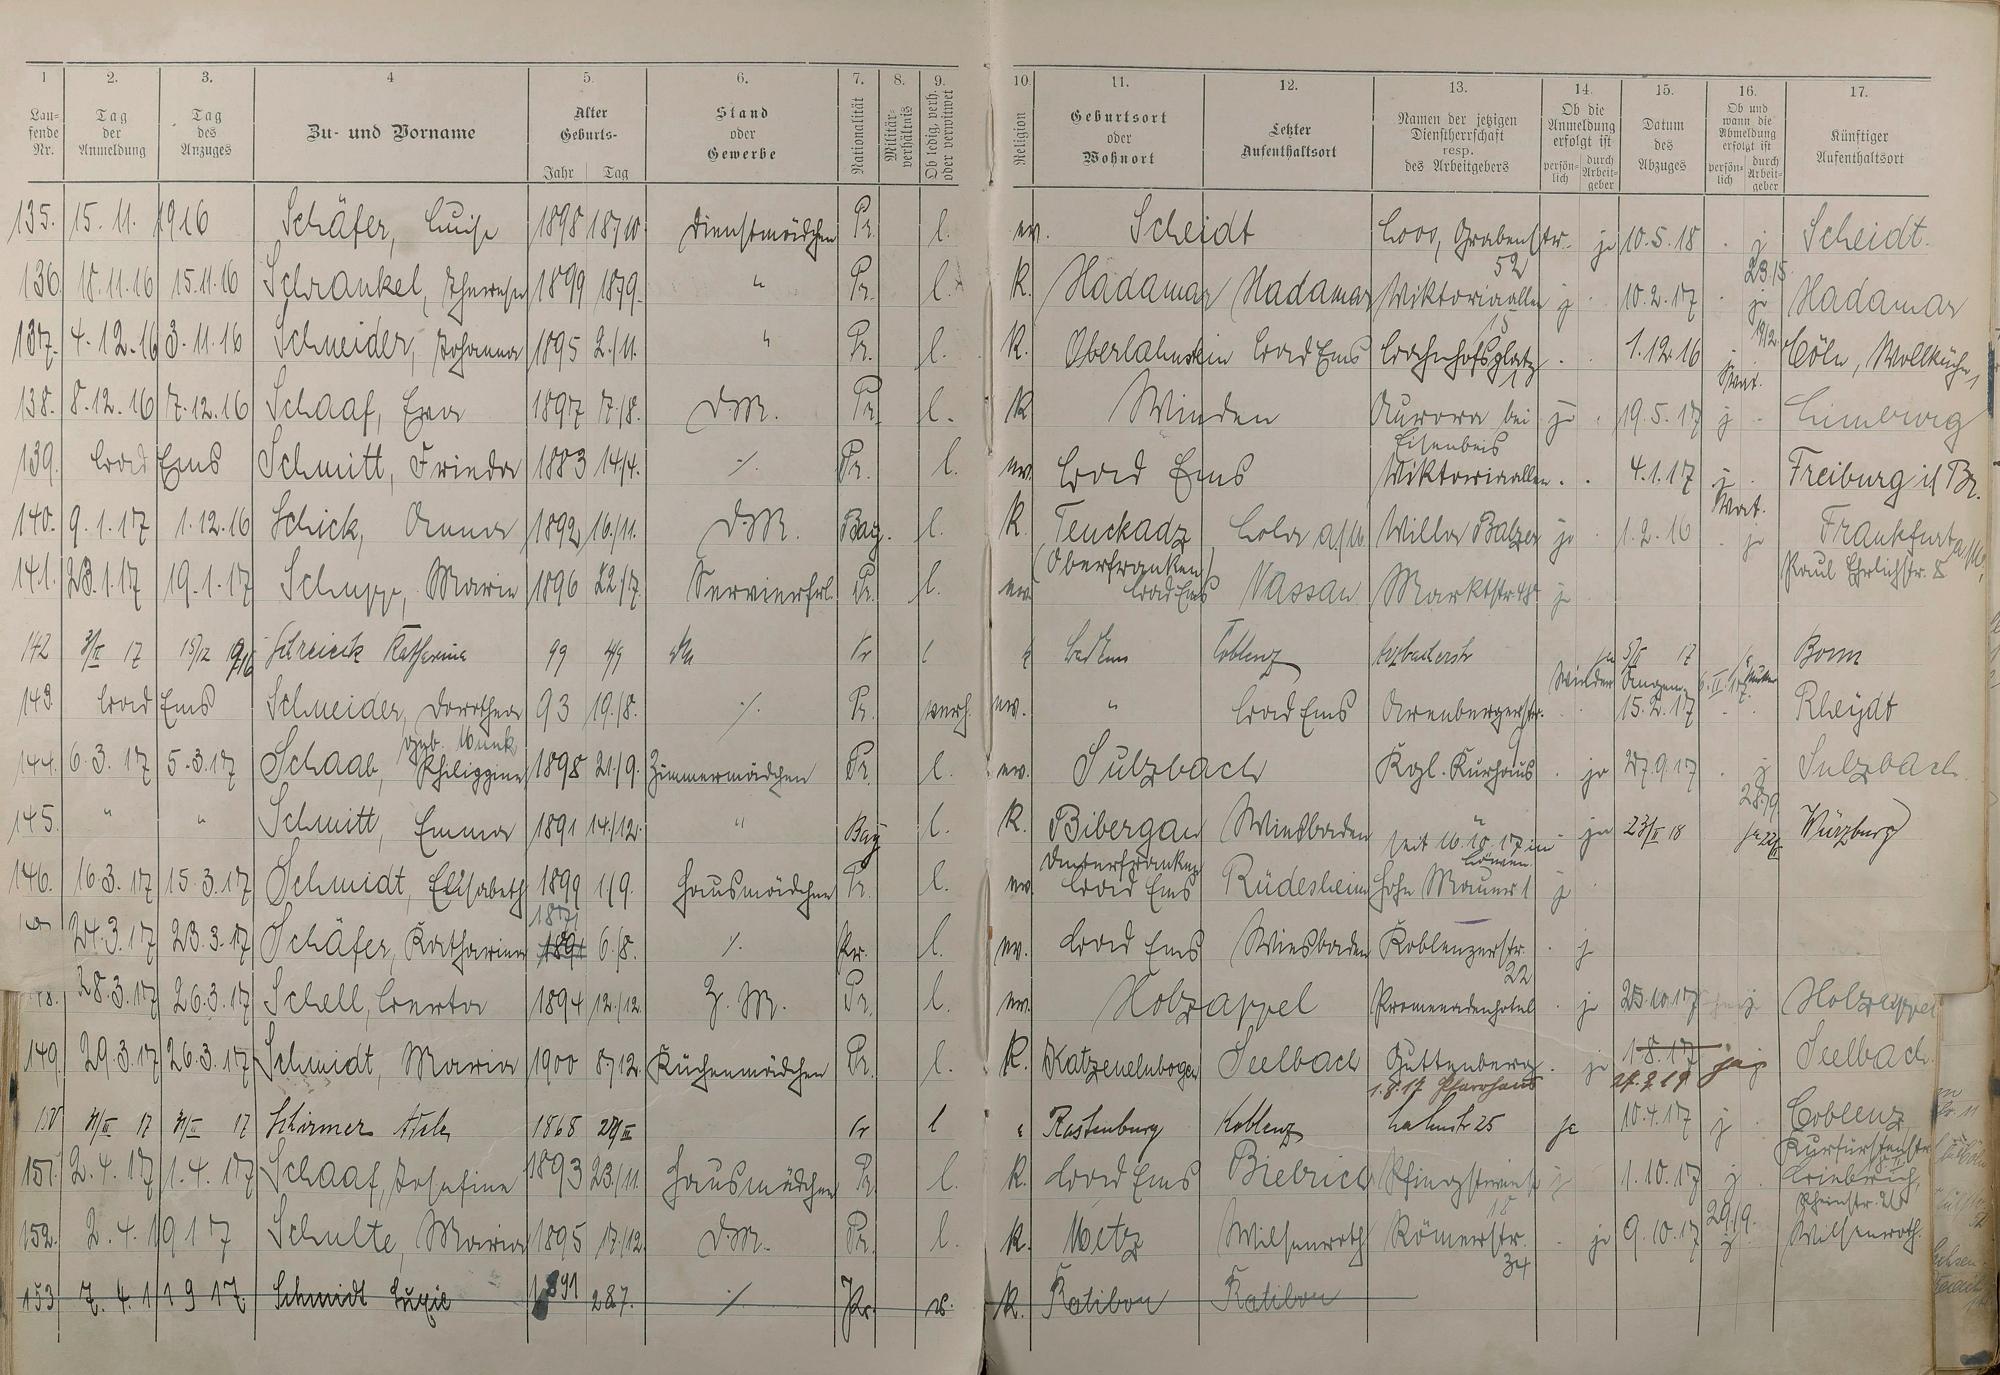 1 2. 3. 4 5. 6. 7. 8. 9. 10. 11. 12. 13. 14. 15. 16. 17.
Lau-
fende
Nr.
Tag
der
Anmeldung
Tag
des
Anzuges
Zu- und Vorname
Alter
Geburts-
Jahr Tag
Stand
oder
Gewerbe
Nationalität
Militär-
verhältnis
Ob ledig, verh.
oder verwitwet
Religion
Geburtsort
oder
Wohnort
Letzter
Aufenthaltsort
Namen der jetzigen
Dienstherrschaft
resp.
des Arbeitgebers
Ob die
Anmeldung
erfolgt ist
persön-
lich
durch
Arbeit-
geber
Datum
des
Abzuges
Ob und
wann die
Abmeldung
erfolgt ist
persön-
lich
durch
Arbeit-
geber
Künftiger
Aufenthaltsort
135. 15. 11. 1916 Schäfer, Luise 1898 18/10. Dienstmädchen Pr. l. ev. Scheidt Grabenstr. 52 ja 10.5.18 j Scheidt.
136. 18.11.16 15.11.16 Schrankel, 1899 18/9. " Pr. l. K. Hadamar Hadamar Viktoriaallee 15 j 10.2.17 ja Hadamar
137. 4.12.16 3.11.16 Schneider, Johanna 1895 2./11. " Pr. l. K. Oberlahnstein Bad Ems Bahnhofsplatz 1. 12 16 j Cöln,
138. 8.12.16 7.12.16 Schaaf, Eva 1897 7./8. D.M. Pr. l. K. Winden Aurora bei Eisenbeis ja 19.5.17 j Limburg
139. Bad Ems Schmitt, Frieda 1883 14/4. ·/. Pr. l. ev. Bad Ems Viktoriaallee 4.1.17 j Freiburg i/ Br.
140. 9.1.17 1.12.16 Schick, Anna 1892 16/11. D.M. Bay. l. K. (Oberfranken) Villa Balzer ja 1.2.16 ja Frankfurt a/M, Paul Ehrlichstr. 8
141. 23.1.17 19.1.17 Schupp, Marie 1896 22/7. Servierfrl. Pr. l. ev. Bad Ems Nassau Marktstr. ja
142 3/II 17 15/12 1916 Katharina 99 4/9 Pr l k Bad Ems Coblenz Arzbacherstr ja 5/II 17 Bonn
143. Bad Ems Schneider, Dorothea geb. Munk 93 19./8. ·/. Pr. verh. ev. " Bad Ems Arenbergerstr. 15.2.17 Rheydt
144. 6.3.17 5.3.17 Schaab, Philippine 1898 21./9. Zimmermädchen Pr. l. ev. Sulzbach Kgl. Kurhaus ja 27.9.17 j Sulzbach.
145. " " Schmitt, Emma 1891 14./12. " Bay l. K. Bibergau Unterfranken Wiesbaden " seit 16.10.17 in Löwen ja 23/II 18 Würzburg
146. 16.3.17 15.3.17 Schmidt, Elisabeth 1899 1./9. Hausmädchen Pr. l. ev. Bad Ems Rüdesheim Hohe Mauer 1 j
24.3.17 23.3.17 Schäfer, Katharina 6./8. ·/. Pr. l. ev. Bad Ems Wiesbaden Koblenzerstr. 22 j
28.3.17 26.3.17 Schell, Berta 1894 12./12. Z. M. Pr. l. ev. Holzappel Promenadenhotel ja 25.10.17 j Holzappel
149. 29.3.17 26.3.17 Schmidt, Maria 1900 8./12. Küchenmädchen Pr. l. K. Katzenelnbogen Seelbach Guttenberg 1.8.17 Pfarrhaus ja 1.8.17 Seelbach
150 31/III 17 31/III 17 Schirmer 1868 27/III Pr l Rastenburg Koblenz Lahnstr 25 ja 10.4.17 j Coblenz, Kurfürstenstr.
151. 2.4.17 1.4.17 Schaaf, Josefine 1893 23./11. Hausmädchen Pr. l. K. Bad Ems Biebrich j 1.10.17 j Biebrich, Rheinstr.
152. 2. 4. 1917 Schulte, Maria 1895 17./12. D.M. Pr. l. K. Metz Wilsenroth Römerstr. 34 ja 9.10.17 29./9. j Wilsenroth.
153 7. 4. 1917 Schmidt 1891 28.7. ·/. Pr. K. Ratibor Ratibor